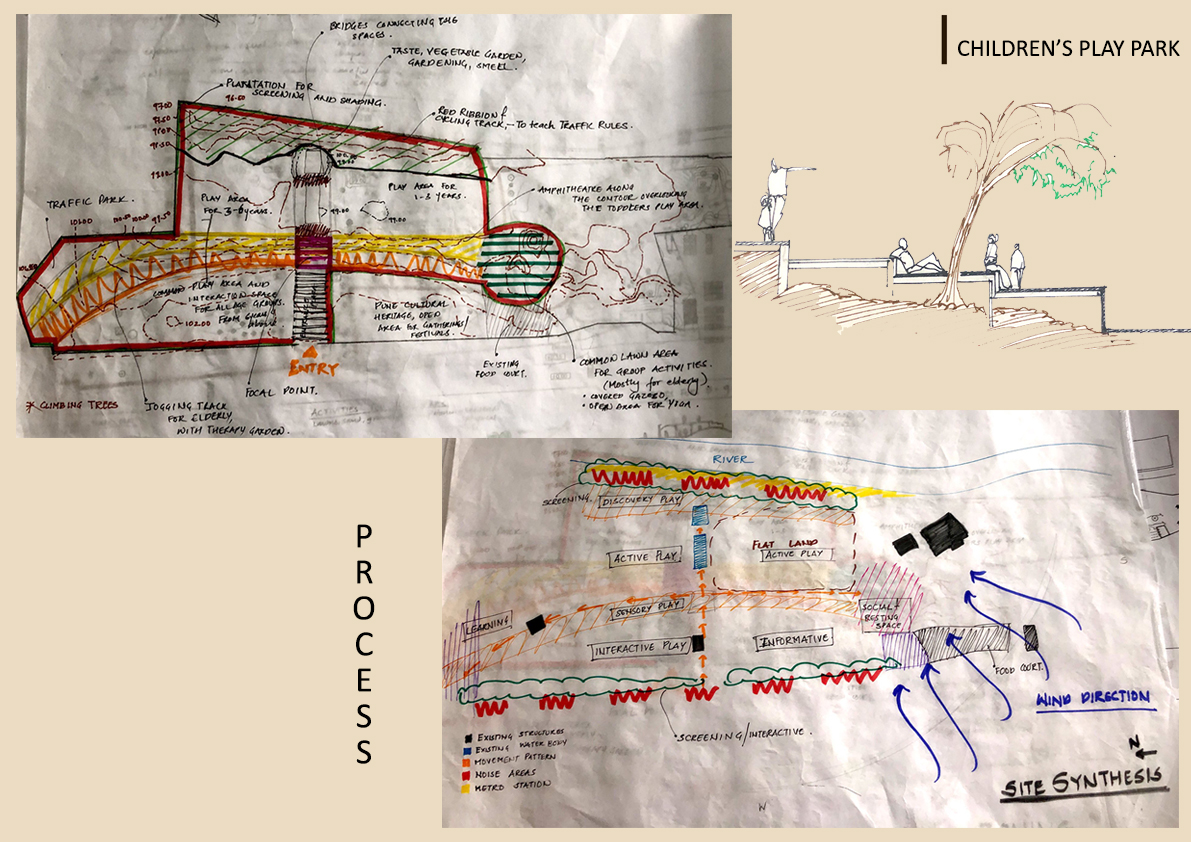 CHILDREN'S PLAY PARK
BRIDGES CONNECTING THE
SPACES.
TASTE, VEGETABLE GARDEN,
GARDENING, SMELL.
PLANTATION FOR
SCREENING AND SHADING.
RED RIBBON &
CYCLING TRACK, - TO teach TRAFFIC RULES.
TRAFFIC PARK.
PLAY AREA
FOR 3-6 years.
PLAY AREA FOR
1-3 YEARS.
99.00
99.00
AMPHITHEATRE ALONG
THE CONTOUR OVERLOOKING
THE TODDLERS PLAY AREA.
COMMON PLAY AREA AND
INTERACTION SPACE
FOR ALL AGE GROUPS.
102.00
PUNE CULTURAL
HERITAGE, OPEN
AREA FOR GATHERINGS/
FESTIVALS.
ENTRY
FOCAL POINT.
EXISTING
FOOD COURT.
COMMON LAWN AREA
FOR GROUP ACTIVITIES.
(Mostly for elderly)
• COVERED GAZEBO,
• OPEN AREA FOR YOGA.
CLIMBING TREES
JOGGING TRACK
FOR ELDERLY,
WITH THERAPY GARDEN.
PROCESS
RIVER
SCREENING.
DISCOVERY PLAY
ACTIVE PLAY
FLAT LAND
ACTIVE PLAY
LEARNING
SENSORY PLAY
SOCIAL &
RESTING
SPACE
INTERACTIVE PLAY
INFORMATIVE
FOOD COURT.
WIND DIRECTION
SCREENING/INTERACTIVE.
EXISTING STRUCTURES
EXISTING WATER BODY
MOVEMENT PATTERN
NOISE AREAS
METRO STATION
N
SITE SYNTHESIS
W